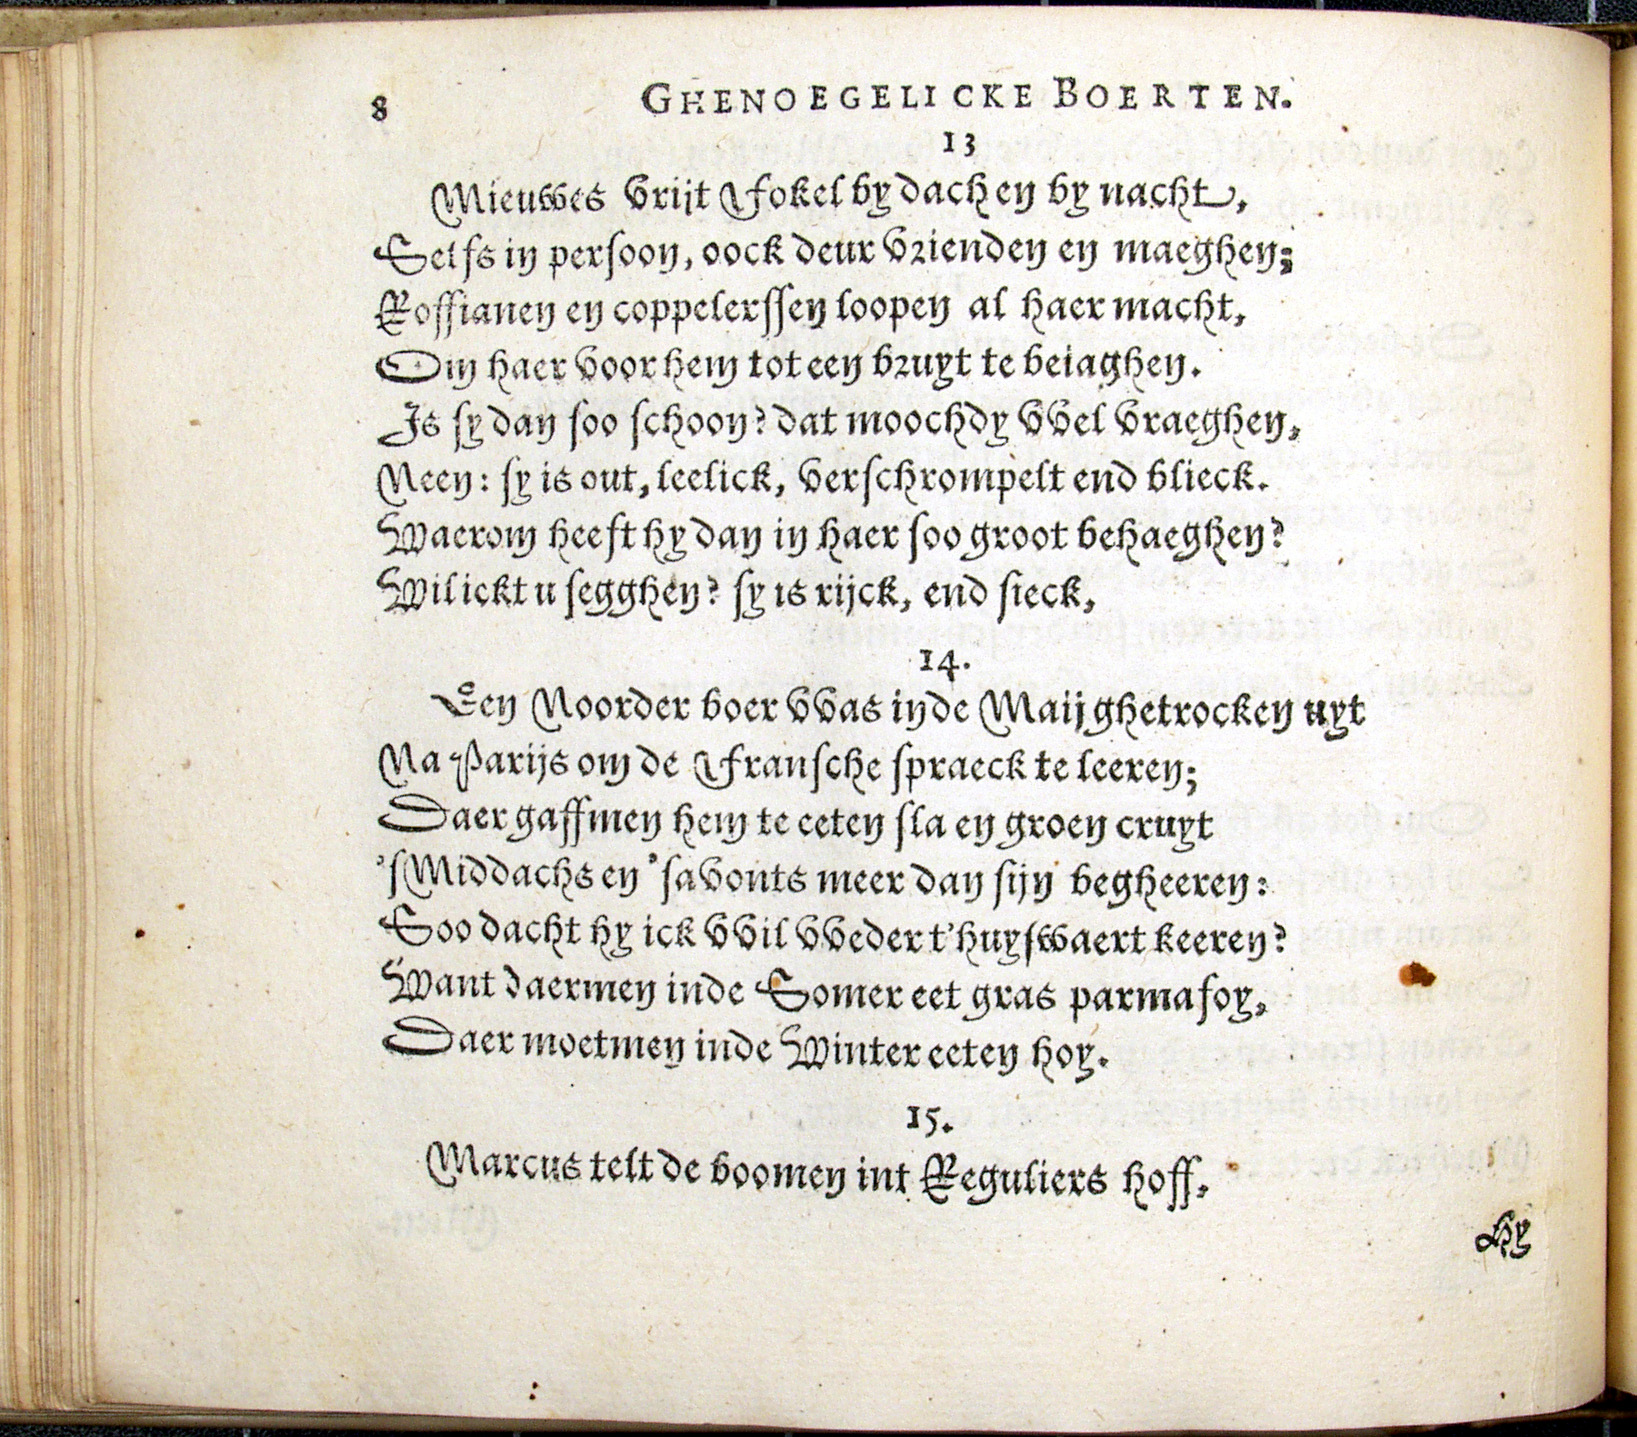 8 GHENOEGELICKE BOERTEN.
13
Mieuwes vrijt Fokel by dach en by nacht,
Selfs in persoon, oock deur vrienden en maeghen;
Roffianen en coppelerssen loopen al haer macht,
Om haer voor hem tot een bruyt te beiaghen.
Is sy dan soo schoon? dat moochdy vvel vraeghen,
Neen: sy is out, leelick, verschrompelt end blieck.
Waerom heeft hy dan in haer soo groot behaeghen?
Wil ickt u segghen? sy is rijck, end sieck,
14.
Een Noorder boer vvas inde Maij ghetrocken uyt
Na Parijs om de Fransche spraeck te leeren;
Daer gaffmen hem te eeten sla en groen cruyt
's Middachs en 'savonts meer dan sijn begheeren:
Soo dacht hy ick vvil vveder t'huyswaert keeren?
Want daermen inde Somer eet gras parmafoy,
Daer moetmen inde Winter eeten hoy.
15.
Marcus telt de boomen int Reguliers hoff,
Hy